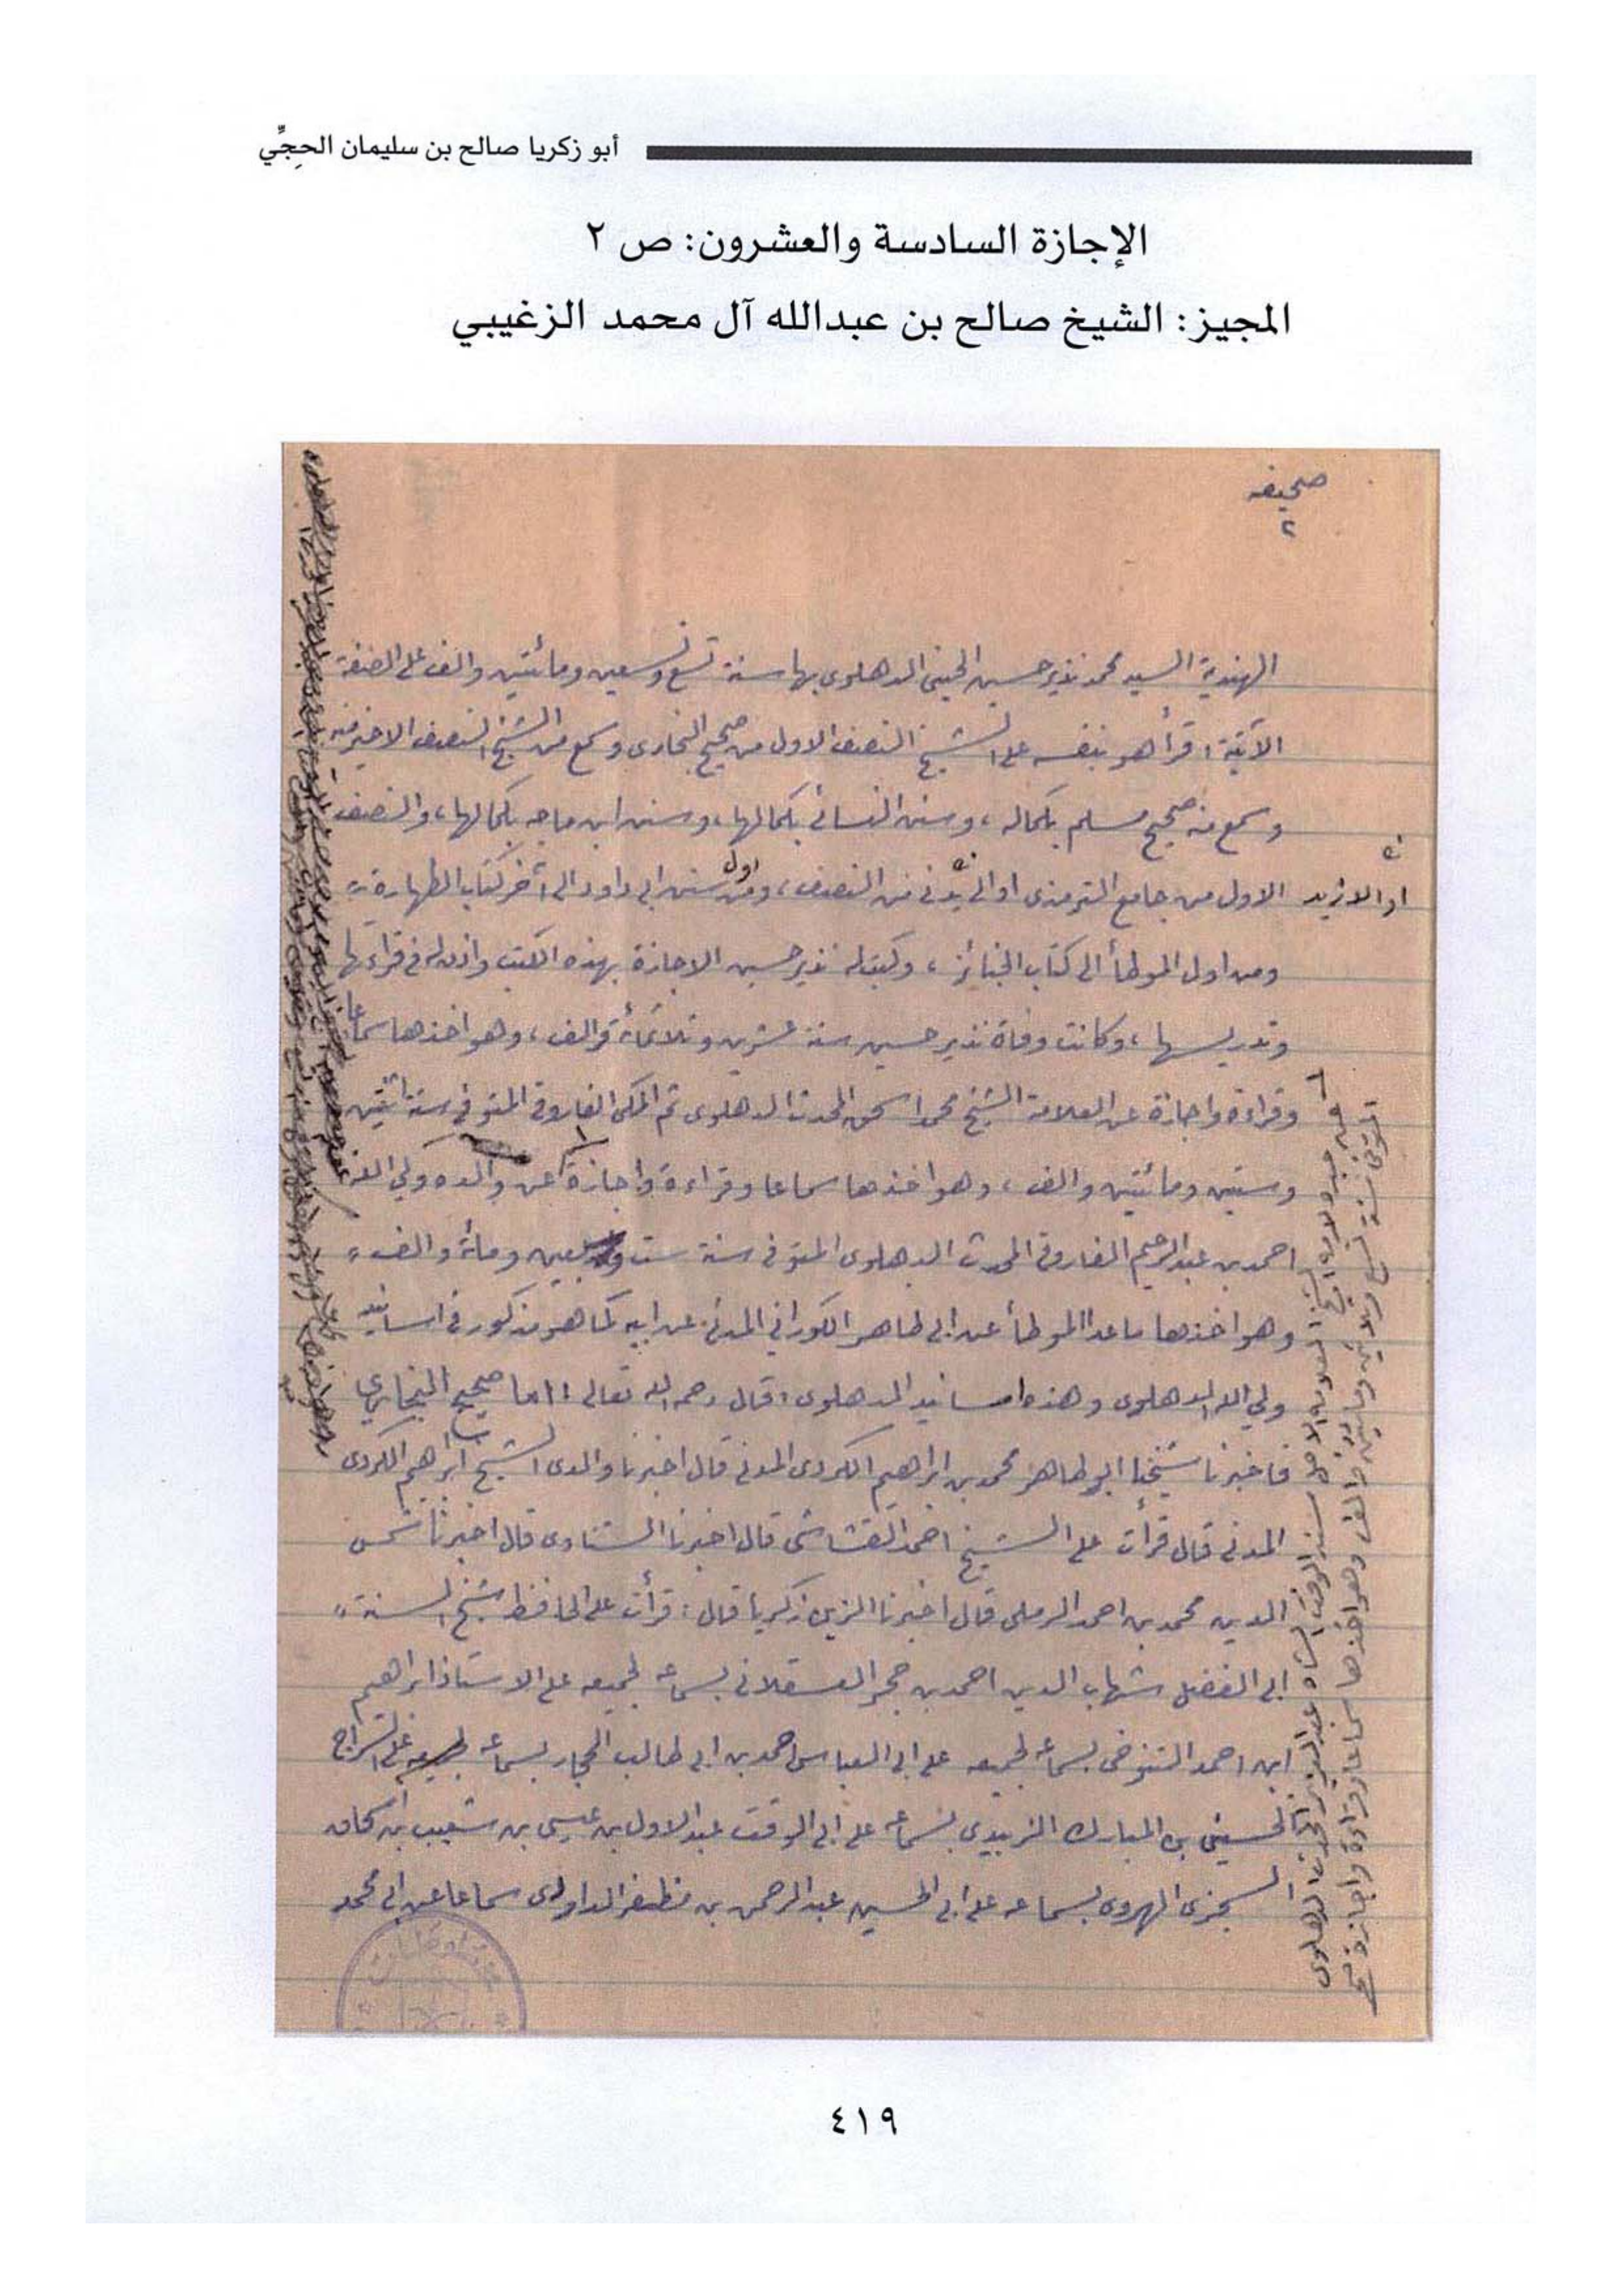 أبو زكريا صالح بن سليمان الحجِّي
الإجازة السادسة والعشرون: ص ٢
المجيز: الشيخ صالح بن عبدالله آل محمد الزغيبي
صحيفه
٢
الهندية السيد محمد نذير حسين الحسيني الدهلوي بها سنة تسع وتسعين ومائتين والف على الصفة
الآتية: قرأ هو بنفسه على الشيخ النصف الاول من صحيح البخارى وسمع من الشيخ النصف الاخير منه
وسمع منه صحيح مسلم بكماله، وسنن النسائي بكمالها، وسنن ابن ماجه بكمالها، والنصف
الاول من جامع الترمذى او الى من النصف، ومن اول سنن ابى داود الى آخر كتاب الطهارة
او الازيد
ومن اول الموطأ الى كتاب الجنائز، وكتب له نذير حسين الاجازة بهذه الكتب واذن له فى قراءتها
وتدريسها، وكانت وفاة نذير حسين سنة عشرين وثلاثمائة والف، وهو اخذها سماعا
وقراءة واجازة عن العلامة الشيخ محمد اسحق المحدث الدهلوى ثم المكى الفاروقى المتوفى سنة اثنتين
وستين ومائتين والف، وهو اخذها سماعا وقراءة واجازة عن والده ولي الله
احمد بن عبد الرحيم الفاروقى المحدث الدهلوى المتوفى سنة ست وسبعين ومائة والف،
وهو اخذها ما عدا الموطأ عن ابى طاهر الكوراني المدنى عن ابيه كما هو مذكور فى اسانيد
ولي الله الدهلوى وهذه اسانيد الدهلوى: قال رحمه الله تعالى: اما صحيح البخاري
فاخبرنا شيخنا ابو طاهر محمد بن ابراهيم الكردى المدنى قال اخبرنا والدى الشيخ ابراهيم الكردى
المدنى قال قرأت على الشيخ احمد القشاشى قال اخبرنا الشناوى قال اخبرنا شمس
الدين محمد بن احمد الرملى قال اخبرنا الزين زكريا قال: قرأت على الحافظ شيخ السنة
ابى الفضل شهاب الدين احمد بن حجر العسقلانى بسماعه لجميعه على الاستاذ ابراهيم
ابن احمد التنوخى بسماعه لجميعه على ابى العباس احمد بن ابى طالب الحجار بسماعه لجميعه على السراج
الحسين بن المبارك الزبيدي بسماعه على ابى الوقت عبد الاول بن عيسى بن شعيب بن
السجزى الهروى بسماعه على ابى الحسين عبد الرحمن بن مظفر الداودى سماعا عن ابى محمد
عن جده لامه الشيخ سند الوقت الشاه عبد العزيز المحدث الدهلوى
المتوفى سنة تسع وثلاثين ومائتين والف وهو اخذها سماعا وقراءة واجازة
٤١٩